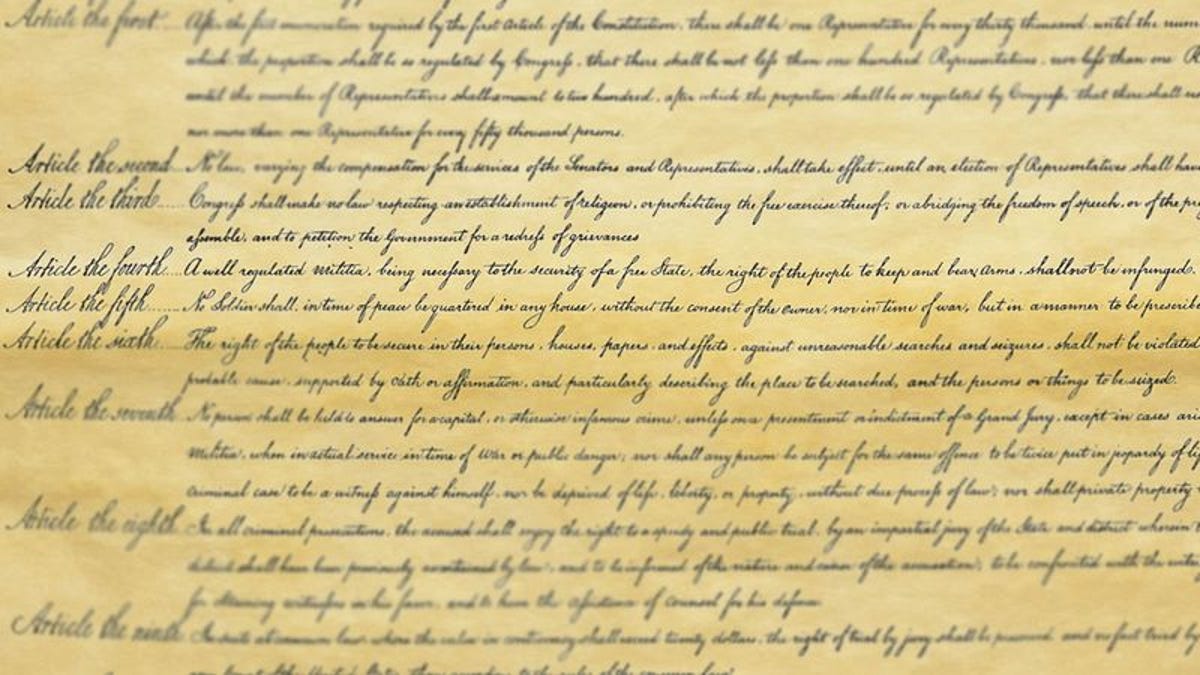 Article the first After the first enumeration required by the first Article of the Constitution, there shall be one Representative for every thirty thousand, until the num
which the proportion shall be so regulated by Congreſs, that there shall be not leſs than one hundred Representatives, nor leſs than one R
until the number of Representatives shall amount to two hundred, after which the proportion shall be so regulated by Congreſs, that there shall no
nor more than one Representative for every fifty thousand persons.
Article the second No law, varying the compensation for the services of the Senators and Representatives, shall take effect, until an election of Representatives shall hav
Article the third Congreſs shall make no law respecting an establishment of religion, or prohibiting the free exercise thereof; or abridging the freedom of speech, or of the pre
aſsemble, and to petition the Government for a redreſs of grievances
Article the fourth A well regulated Militia, being neceſsary to the security of a free State, the right of the people to keep and bear Arms, shall not be infringed.
Article the fifth No Soldier shall, in time of peace be quartered in any house, without the consent of the owner, nor in time of war, but in a manner to be prescribe
Article the sixth The right of the people to be secure in their persons, houses, papers, and effects, against unreasonable searches and seizures, shall not be violated
probable cause, supported by Oath or affirmation, and particularly describing the place to be searched, and the persons or things to be seized.
Article the seventh No person shall be held to answer for a capital, or otherwise infamous crime, unleſs on a presentment or indictment of a Grand Jury, except in cases aris
Militia, when in actual service in time of War or public danger; nor shall any person be subject for the same offence to be twice put in jeopardy of li
criminal case to be a witneſs against himself, nor be deprived of life, liberty, or property, without due proceſs of law; nor shall private property
Article the eighth In all criminal prosecutions, the accused shall enjoy the right to a speedy and public trial, by an impartial jury of the State and district wherein
district shall have been previously ascertained by law, and to be informed of the nature and cause of the accusation; to be confronted with the witn
for obtaining witneſses in his favor, and to have the aſsistance of counsel for his defence
Article the ninth In suits at common law, where the value in controversy shall exceed twenty dollars, the right of trial by jury shall be preserved, and no fact tried by